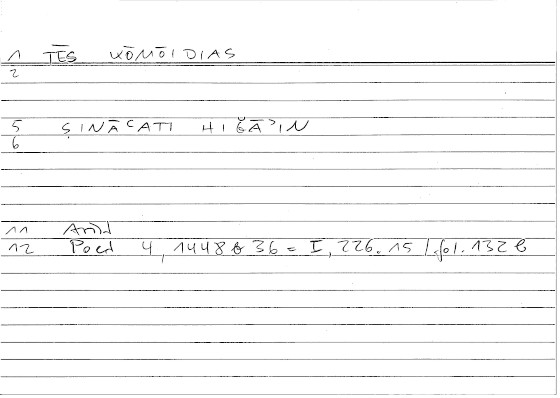 1 TĒS KŌMŌIDIAS
2
5 ṢINĀʿATI HIǦĀʾIN
6
11 Arist
12 Poet 4, 1448 b 36 = I, 226.15 / fol. 132 b